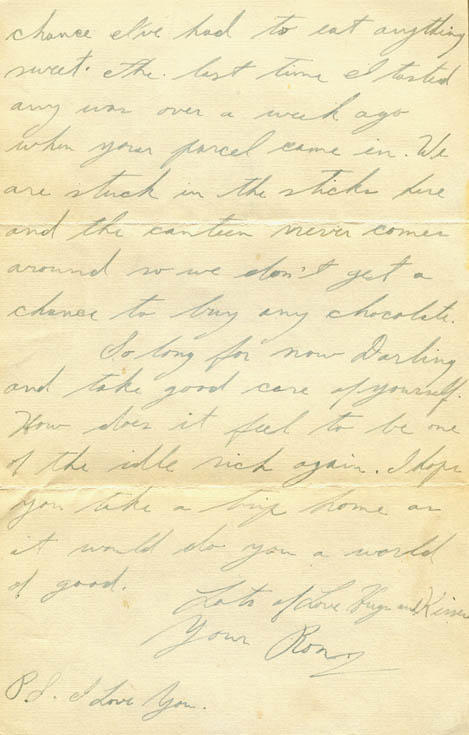 chance I've had to eat anything
sweet. The last time I tasted
any was over a week ago
when your parcel came in. We
are stuck in the sticks here
and the canteen never comes
around so we don't get a
chance to buy any chocolate.
So long for now Darling
and take good care of yourself.
How does it feel to be one
of the idle rich again. I hope
you take a trip home as
it would do you a world
of good.
Lots of Love Hugs and Kisses
Your Ron
P.S. I Love You.